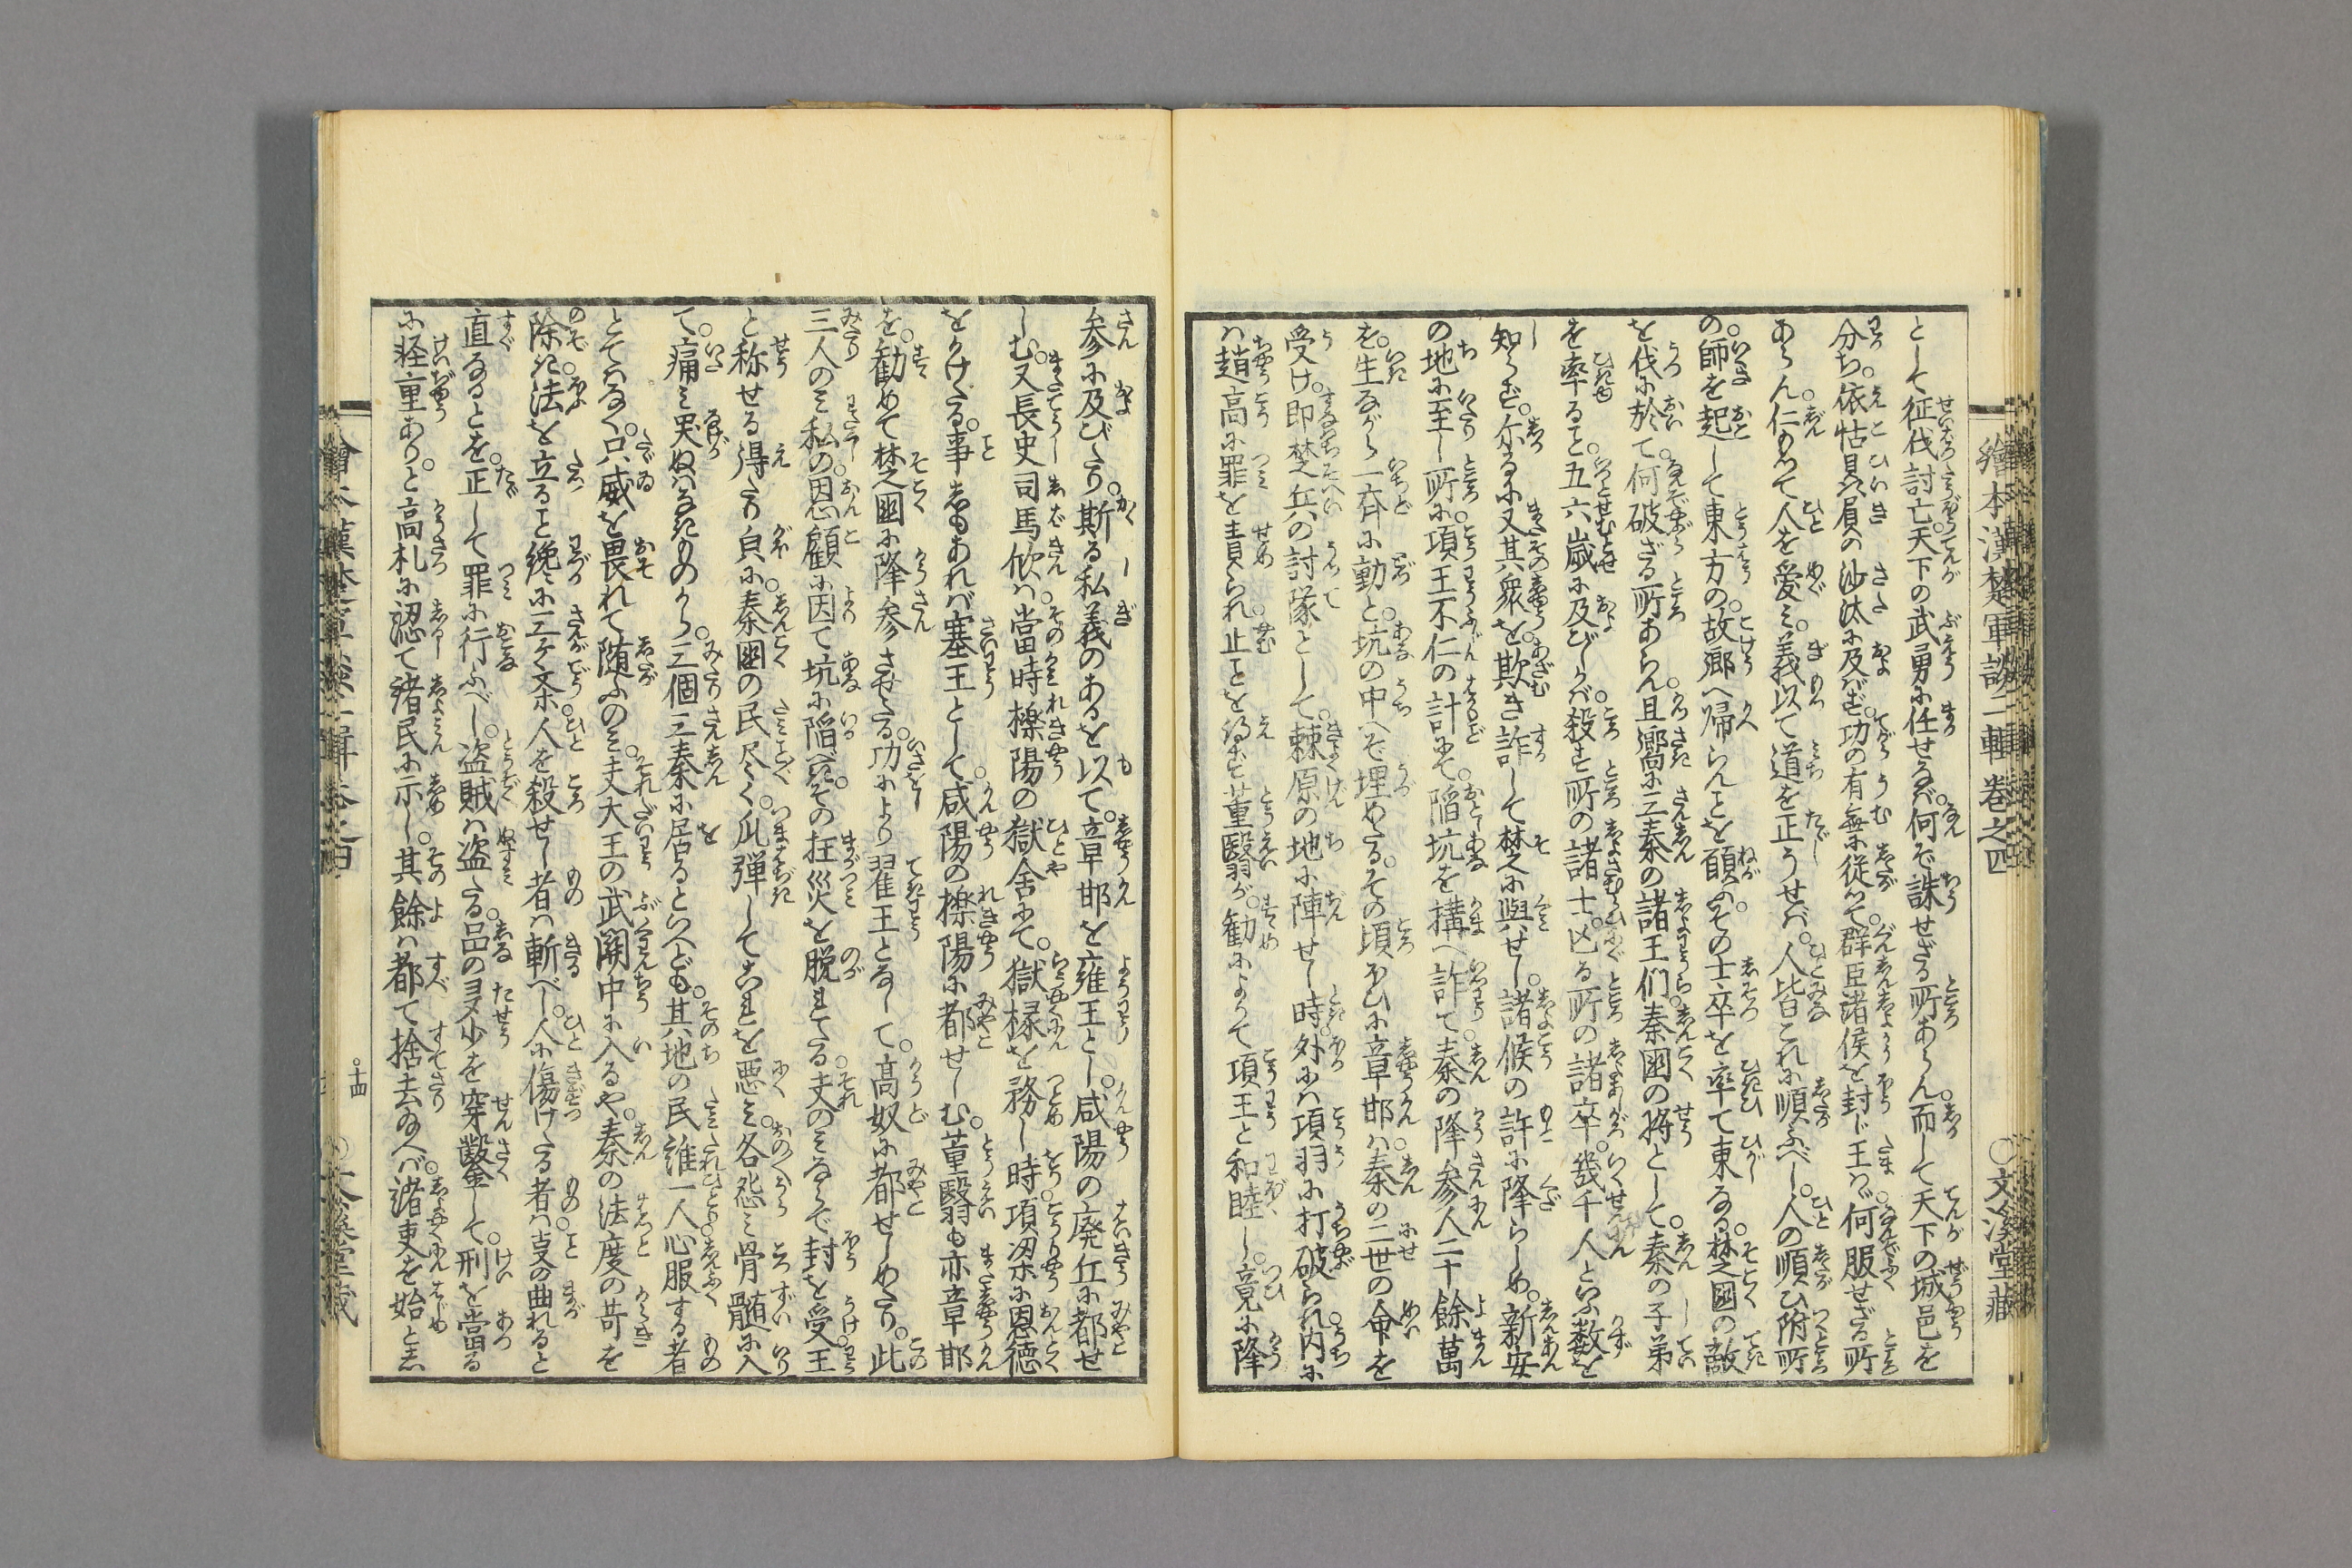 繪本漢楚軍談二輯巻之四
〇文溪堂藏
として征伐討亡。天下の武勇に任せなば。何ぞ誅せざる所あらん。而して天下の城邑を
分ち。依怙贔屓の沙汰に及ばず。功の有無に従つて。群臣諸侯を封じ王はゞ。何服せざる所
あらん。仁もつて人を愛ミ。義以て道を正うせバ。人皆これに順ふべし。人の順ひ附所
の。師を起して東方の。故郷へ帰らんとを願ふ。その士卒を率て東なる。楚国の敵
を伐に於て。何破ざる所あらん。且嚮に三秦の諸王們。秦国の将として。秦の子弟
を率ると。五六歳に及びしかバ。殺す所の諸士。亡る所の諸卒。幾千人といふ数を
知らず。尓るに又其衆を。欺き詐して楚に與せし。諸候の許に降らしめ。新安
の地に至し所に。項王不仁の計にて。陥坑を構へ詐て。秦の降参人二十餘萬
を。生ながら一斉に動と。坑の中へぞ埋めたる。その頃ほひに章邯ハ。秦の二世の命を
受け。即楚兵の討隊として。棘原の地に陣せし時。外にハ項羽に打破られ。内に
ハ趙高に罪を責られ。止ことを得ず董翳が。勧によつて項王と和睦し。竟に降
参に及びたり。斯る私義のあるを以て。章邯を雍王とし。咸陽の廃丘に都せ
しむ。又長史司馬欣ハ。當時櫟陽の獄舎にて。獄椽を務し時。項梁に恩徳
をかけたる。事しもあれバ塞王として。咸陽の櫟陽に都せしむ。董翳も亦章邯
を。勧めて楚国に降参させたる。功により翟王となして。高奴に都せしめたり。此
三人のミ私の。恩顧に因て坑に陥べき。その狂災を脱れたる。夫のミならで封を受。王
と称せる得たり㒵に。秦国の民尽く。爪弾してこれを悪ミ。各怨ミ骨髄に入
て。痛ミ哭ぬハなきものから。三個三秦に居るといへども。其地の民誰一人。心服する者
とてハなく。只威を畏れて随ふのミ。夫大王の武関中に入るや。秦の法度の苛を
除き。法を立ると纔に三ケ条。人を殺せし者ハ斬べし。人に傷けたる者ハ。夏の曲れると
直なるとを。正して罪に行ふべし。盗賊ハ盗たる。品の多少を穿鑿して。刑を當る
に軽重あり。と高札に認て諸民に示し。其餘ハ都て捨去給へバ。諸吏を始とし
〇十四